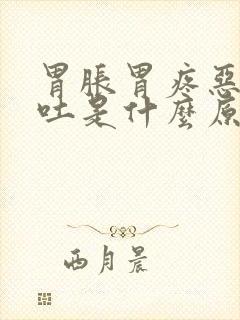 胃脹胃疼惡
吐是什麼原
西月晨